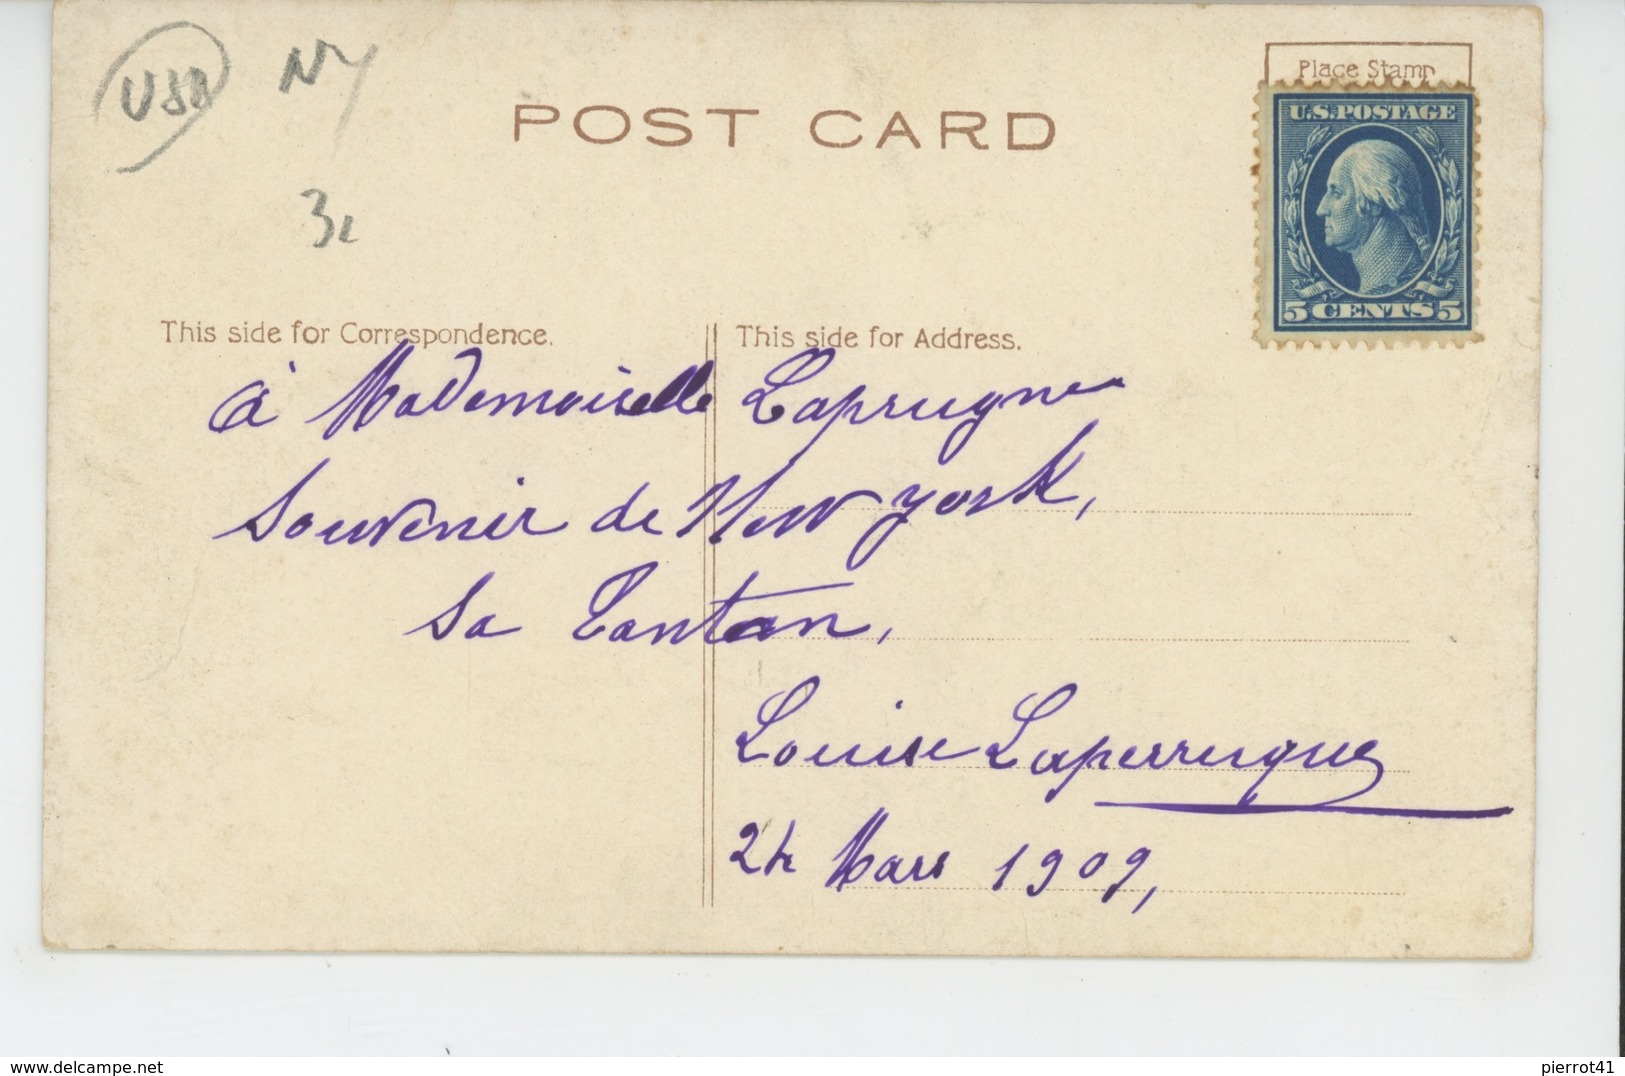 USA NY
3
POST CARD
Place Stamp
U.S.POSTAGE
5 CENTS 5
This side for Correspondence.
This side for Address.
à Mademoiselle Laprugne
Souvenir de New York,
Sa Tantan,
Louise Laperrugue
24 Mars 1909,
delcampe.net
pierrot41